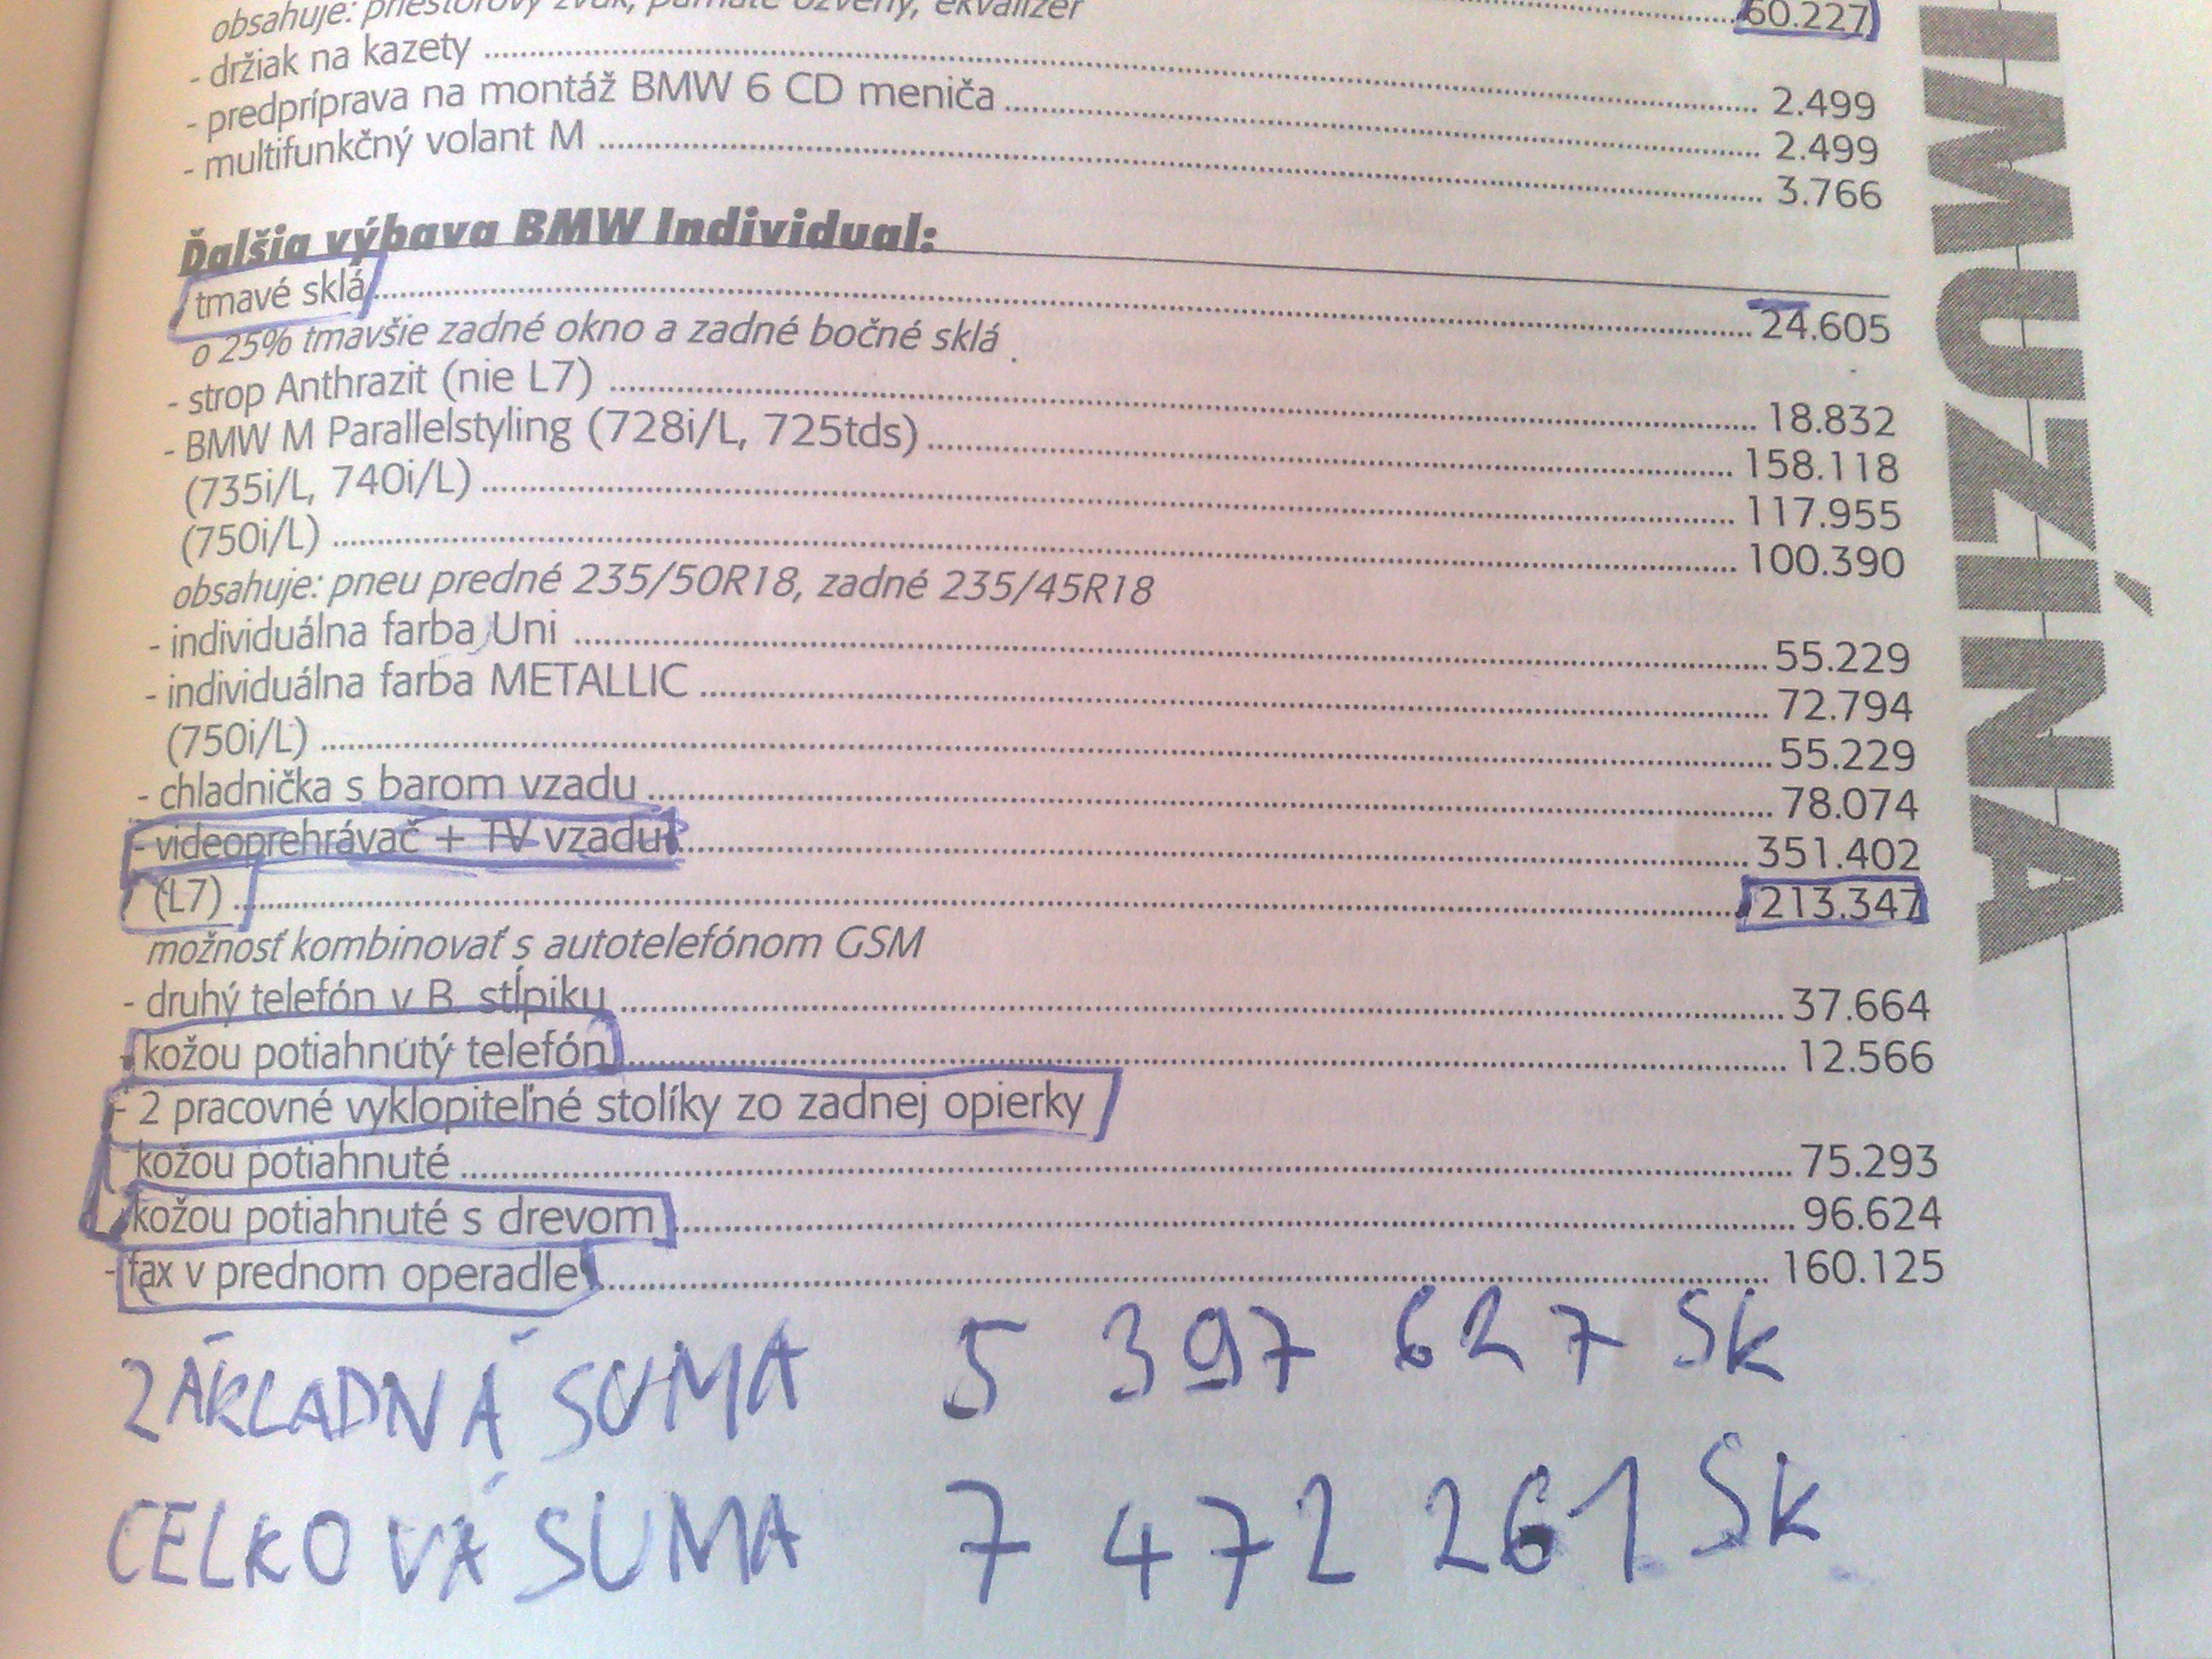 obsahuje: priestorový zvuk, pamäte ozveny, ekvalizér ..... 60.227
- držiak na kazety ..... 2.499
- predpríprava na montáž BMW 6 CD meniča ..... 2.499
- multifunkčný volant M ..... 3.766
Ďalšia výbava BMW Individual:
tmavé sklá ..... 24.605
o 25% tmavšie zadné okno a zadné bočné sklá
- strop Anthrazit (nie L7) ..... 18.832
- BMW M Parallelstyling (728i/L, 725tds) ..... 158.118
(735i/L, 740i/L) ..... 117.955
(750i/L) ..... 100.390
obsahuje: pneu predné 235/50R18, zadné 235/45R18
- individuálna farba Uni ..... 55.229
- individuálna farba METALLIC ..... 72.794
(750i/L) ..... 55.229
- chladnička s barom vzadu ..... 78.074
- videoprehrávač + TV vzadu ..... 351.402
(L7) ..... 213.347
možnosť kombinovať s autotelefónom GSM
- druhý telefón v B. stĺpiku ..... 37.664
- kožou potiahnutý telefón ..... 12.566
- 2 pracovné vyklopiteľné stolíky zo zadnej opierky
kožou potiahnuté ..... 75.293
kožou potiahnuté s drevom ..... 96.624
- fax v prednom operadle ..... 160.125
ZÁKLADNÁ SUMA 5 397 627 Sk
CELKOVÁ SUMA 7 472 261 Sk
IMUZÍNA